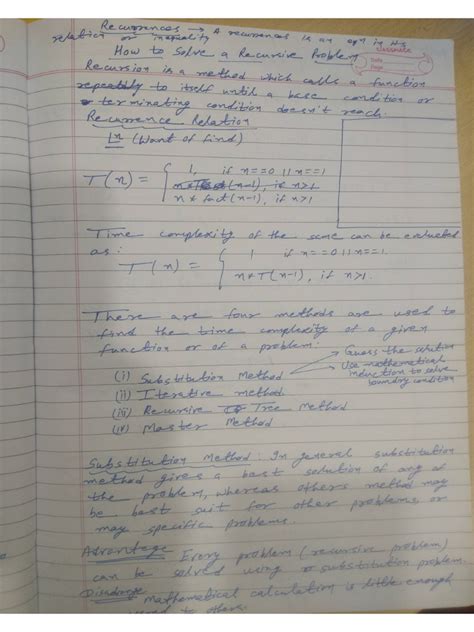 Recurrences → A recurrences is an eqn in its
relation or inequality
How to Solve a Recursive Problem
classmate
Date
Page
Recursion is a method which calls a function
repeatedly to itself until a base condition or
terminating condition doesn't reach.
Recurrence Relation
Ln (want of find)
T(n) = { 1, if n==0 || n==1
(n-1), if n>1
n * fact(n-1), if n>1
Time complexity of the same can be evaluated
as:
T(n) = { 1 if n==0 || n==1.
n*T(n-1), if n>1.
There are four methods are used to
find the time complexity of a given
function or of a problem:
Guess the solution
(i) Substitution Method
Use mathematical
induction to solve
boundry condition
(ii) Iterative method
(iii) Recursive Tree Method
(iv) Master Method
Substitution Method: In general substitution
method gives a best solution of any of
the problem, whereas others method may
be best suit for other problems or
may specific problems.
Advantage: Every problem (recursive problem)
can be solved using substitution problem.
mathematical calculation is little enough
to others.